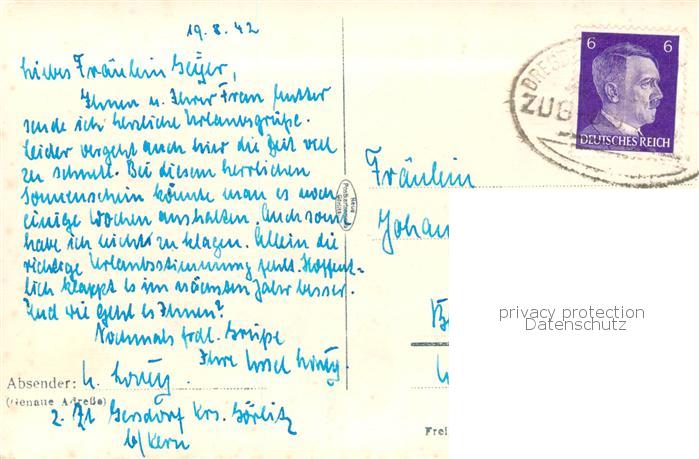 19.8.42
Liebes Fräulein Geißler,
Ihnen u. Ihrer Frau Mutter
sende ich herzliche Urlaubsgrüße.
Leider vergeht auch hier die Zeit viel
zu schnell. Bei diesem herrlichen
Sonnenschein könnte man es noch
einige Wochen aushalten. Auch sonst
habe ich nichts zu klagen. Allein die
richtige Urlaubsstimmung fehlt. Hoffent-
lich klappt es im nächsten Jahr besser.
Und wie geht es Ihnen?
Nochmals frdl. Grüße
Ihre
Absender:
(Genaue Adreße)
2. Zt Gersdorf Krs. Görlitz
b/Kern
Neue
Görlitz
6 6
DEUTSCHES REICH
ZUG
Fräulein
Johan
privacy protection
Datenschutz
Frei